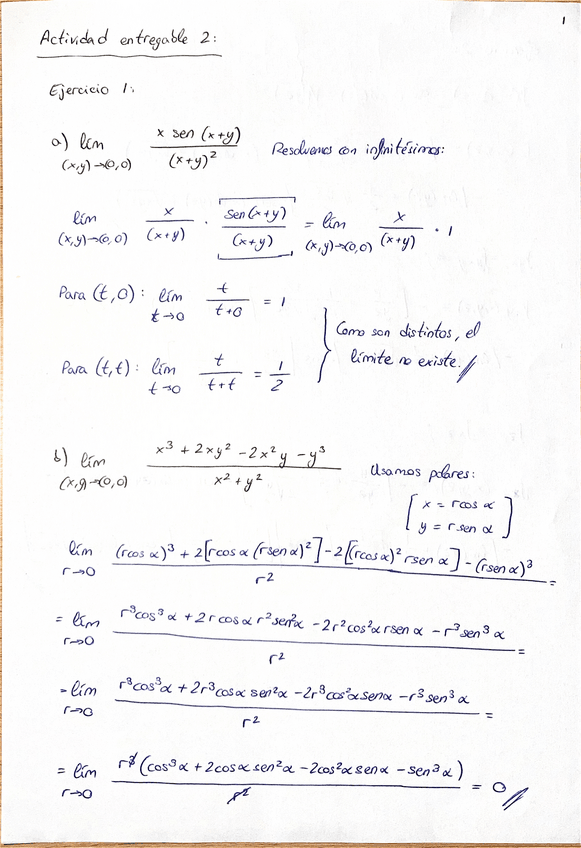 1
Actividad entregable 2:
Ejercicio 1:
a) lím (x,y)→(0,0) x sen (x+y) / (x+y)² Resolvemos con infinitésimos:
lím (x,y)→(0,0) x/(x+y) · [sen(x+y)/(x+y)] = lím (x,y)→(0,0) x/(x+y) · 1
Para (t,0): lím t→0 t/(t+0) = 1
Como son distintos, el
límite no existe. //
Para (t,t): lím t→0 t/(t+t) = 1/2
b) lím (x,y)→(0,0) (x³ + 2xy² - 2x²y - y³) / (x² + y²) Usamos polares:
[x = r cos α
y = r sen α]
lím r→0 ((r cos α)³ + 2[r cos α (r sen α)²] - 2[(r cos α)² r sen α] - (r sen α)³) / r² =
= lím r→0 (r³cos³α + 2r cos α r² sen²α - 2r²cos²α r sen α - r³ sen³ α) / r² =
= lím r→0 (r³cos³α + 2r³cos α sen²α - 2r³cos²α sen α - r³ sen³ α) / r² =
= lím r→0 r³(cos³α + 2cos α sen²α - 2cos²α sen α - sen³ α) / r² = 0 //